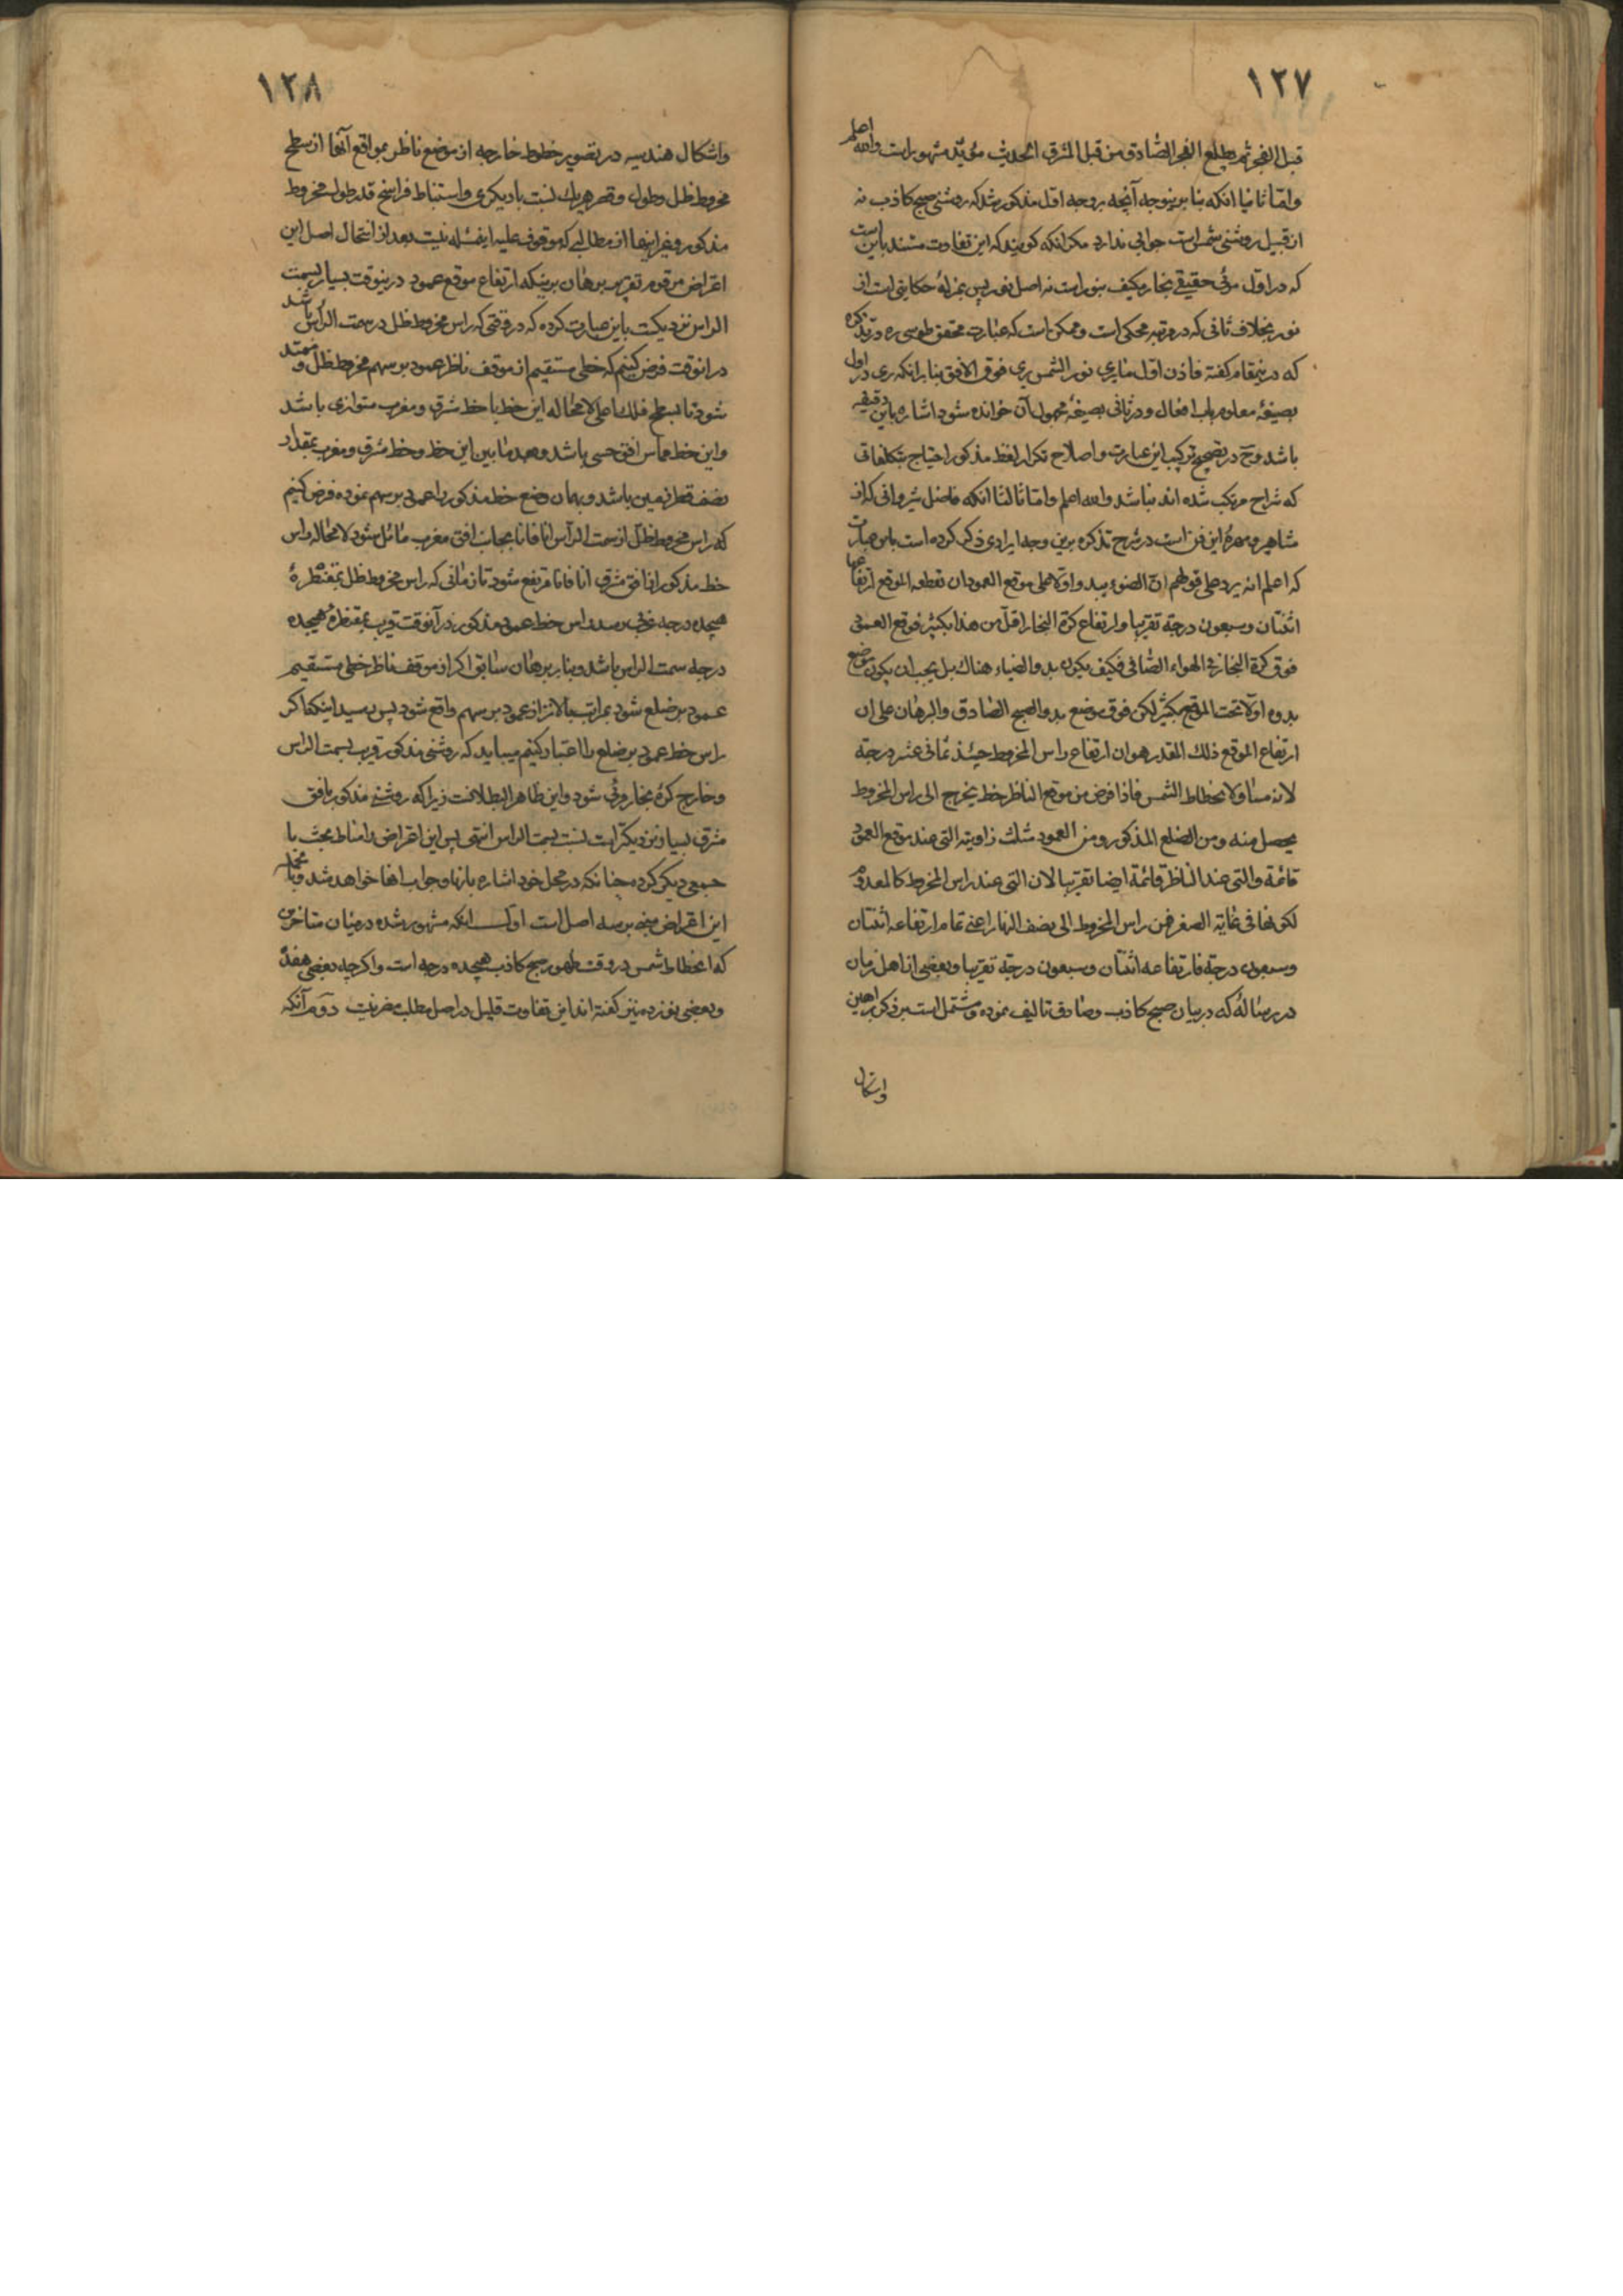 ١٢٧
قبل الفجر ثم یطلع الفجر الصادق من قبل المشرق الحدیث مؤید مشهور است والله اعلم
واما ثانیا انکه بنا برینوجه آنچه بروجه اول مذکور شد که روشنی صبح کاذب نه
از قبیل روشنی شمس است جوابی ندارد مکر انکه کویند که این تفاوت مستند باین است
که در اول مرئی حقیقی بخار مکیف بنور است نه اصل نور پس بمنزلهٔ حکایتی است از
نور بخلاف ثانی که در مرتبه محکی است و ممکن است که عبارت محقق طوسی ره در تذکره
که درینمقام کفته فاذن اول ما یری نور الشمس یری فوق الافق بنا برانکه یری در اول
بصیغهٔ معلوم باب افعال و در ثانی بصیغهٔ مجهول آن خوانده شود اشاره باین دقیقه
باشد وح در تصحیح ترکیب این عبارت و اصلاح تکرار لفظ مذکور احتیاج بتکلفاتی
که شراح مرتکب شده اند نباشد والله اعلم واما ثالثا انکه فاضل شیروانی که از
مشاهیر و مهرهٔ این فن است در شرح تذکره برین وجه ایرادی ذکر کرده است باین عبارت
که اعلم انه یرد علی قولهم ان الضوء یبدو اولا علی موقع العمود ان نقطه الموقع ارتفاعها
اثنتان وسبعون درجة تقریبا وارتفاع کرة البخار اقل من هذا بکثیر فموقع العمود
فوق کرة البخار فی الهواء الصافی فکیف یکون بدو الضیاء هناک بل یجب ان یکون موضع
بدوه اولا تحت الموقع بکثیر لکن فوق موضع بدو الصبح الصادق والبرهان علی ان
ارتفاع الموقع ذلک القدر هو ان ارتفاع راس المخروط حینئذ ثمانی عشر درجة
لانه مساو لانحطاط الشمس فاذا فرض من موقع الناظر خط یخرج الی راس المخروط
یحصل منه ومن الضلع المذکور ومن العمود مثلث زاویته التی عند موقع العمود
قائمة والتی عند الناظر قائمة ایضا تقریبا لان التی عند راس المخروط کالمعدوم
لکونها فی غایة الصغر فمن راس المخروط الی نصف النهار اعنی تمام ارتفاعه اثنتان
وسبعون درجة فارتفاعه اثنتان وسبعون درجة تقریبا وبعضی از اهل زمان
در رسالهٔ که در بیان صبح کاذب و صادق تالیف نموده و مشتمل است بر ذکر براهین
واشکال
١٢٨
واشکال هندسیه در تصویر خطوط خارجه از موضع ناظر بمواقع آنها از سطح
مخروط ظل وطول وقصر هریک نسبت بادیکری واستنباط فراسخ قدر طول مخروط
مذکور وغیر اینها از مطالبی که موقوف علیه اینمسئله نیست بعد از انتحال اصل این
اعتراض مرقوم تقریر برهان برینکه ارتفاع موقع عمود درینوقت بسیار بسمت
الراس نزدیکست باین عبارت کرده که در وقتی که راس مخروط ظل در سمت الراس باشد
در انوقت فرض کنیم که خطی مستقیم از موقف ناظر عمود بر سهم مخروط ظل و ممتد
شود تا بسطح فلک اعلی لا محاله این خط با خط شرق و مغرب متوازی باشد
واین خط مماس افق حسی باشد وبعد ما بین این خط وخط مشرق ومغرب بمقدار
نصف قطر زمین باشد وبهمان وضع خط مذکور را عمود بر سهم نموده فرض کنیم
که راس مخروط ظل از سمت الراس انا فانا بجانب افق مغرب مائل شود لا محاله راس
خط مذکور از افق مشرق انا فانا مرتفع شود تا زمانی که راس مخروط ظل بمقنطرهٔ
هیجده درجه غربی رسد راس خط عمود مذکور در آنوقت قریب بمقنطرهٔ هیجده
درجه سمت الراس باشد وبنا بر برهان سابق اکر از موقف ناظر خطی مستقیم
عمود بر ضلع شود بمراتب بالاتر از عمود بر سهم واقع شود پس برسید اینکه اکر
راس خط عمود بر ضلع را اعتبار کنیم میباید که روشنی مذکور قریب بسمت الراس
وخارج کرهٔ بخار مرئی شود واین ظاهر البطلانست زیرا که روشنی مذکور بافق
مشرق بسیار نزدیکتر است نسبت بسمت الراس انتهی پس این اعتراض را مناط بحث با
جمعی دیکر کرده چنانکه در محل خود اشاره بانها وجواب انها خواهد شد وبالجمله
این اعتراض مبنی بر سه اصل است اول انکه مشهور شده در میان متاخرین
که انحطاط شمس در وقت ظهور صبح کاذب هیجده درجه است واکرچه بعضی هفده
وبعضی نوزده نیز کفته اند این تفاوت قلیل در اصل مطلب مضر نیست دوم آنکه